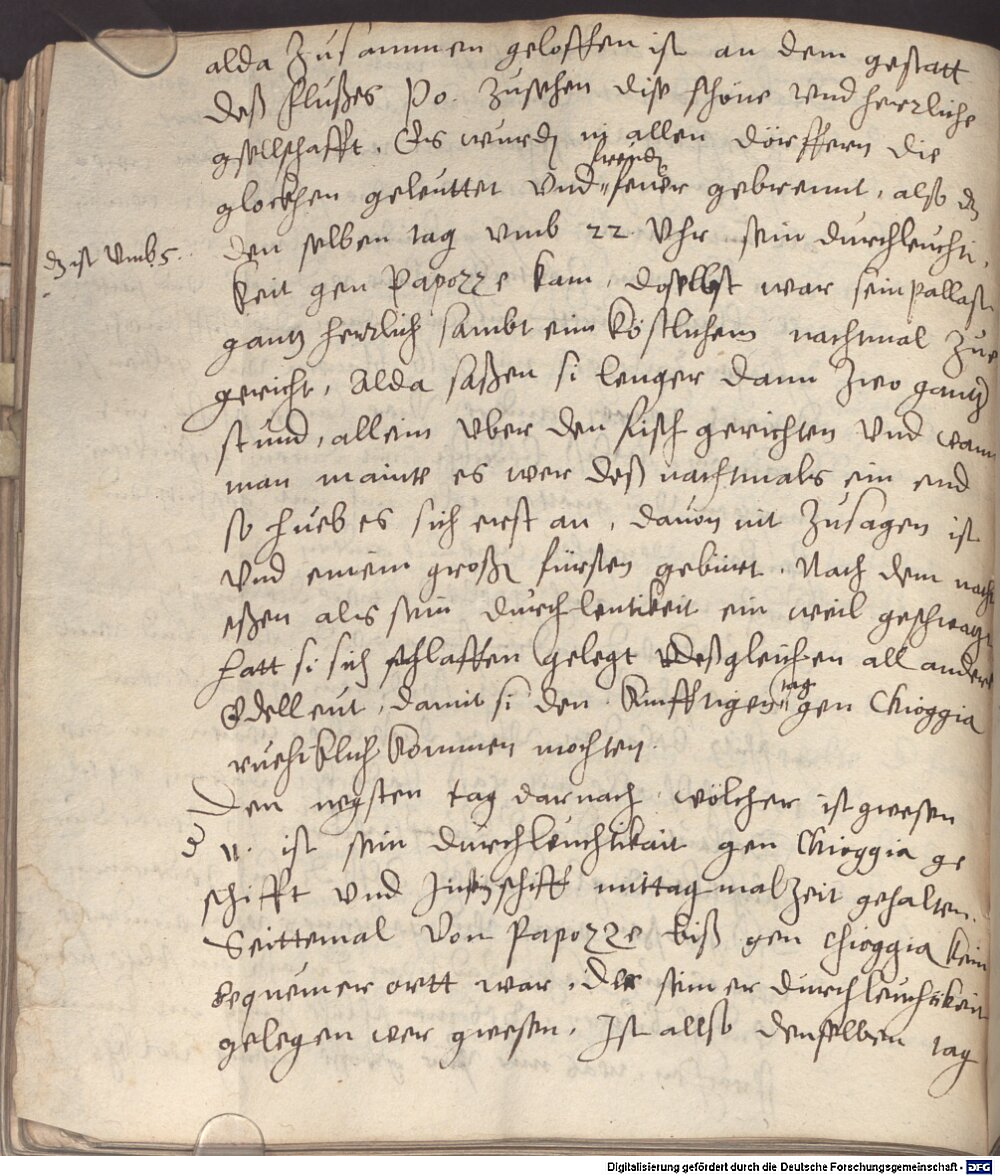 alda Zusammen geloffen ist an dem gestatt
deß flußes Po. Zusehen dise schöne vnd herrliche
gsellschafft. Es wurdn in allen dörffern die
glockhen geleuttet vnd freudn feuer gebrennt, also dz
dz ist vmb 5.
den selben tag vmb 22 Vhr sein durchleuchti,
keit gen Papozze kam, doselbst war sein pallast
gantz herrlich sambt eim köstlichem nachtmal zue
gericht, Alda saßen si lenger dann zwo gantz
stund, allein vber den fisch gerichten vnd wann
man mainte es wer deß nachtmals ein end
so hueb es sich erst an, dauon nit zusagen ist
vnd einem großn fürsten gebürt. Nach dem nacht
eßen als sein durchleutikeit ein weil geschwatzt
hatt si sich schlaffen gelegt deßgleichen all andere
Edelleut, damit si den künfftigen tag gen Chioggia
ruehiklich kommen mochten.
Den negsten tag darnach wölcher ist gwesen
der 11. ist sein durchleuchtikait gen Chioggia ge
schifft vnd Jm schiff mittag malzeit gehalten.
Seittemal von Papozze biß gen Chioggia kein
bequemer ortt war, der seiner durchleuchtikeit
gelegen wer gwesen. Ist allso denselben tag
Digitalisierung gefördert durch die Deutsche Forschungsgemeinschaft - DFG